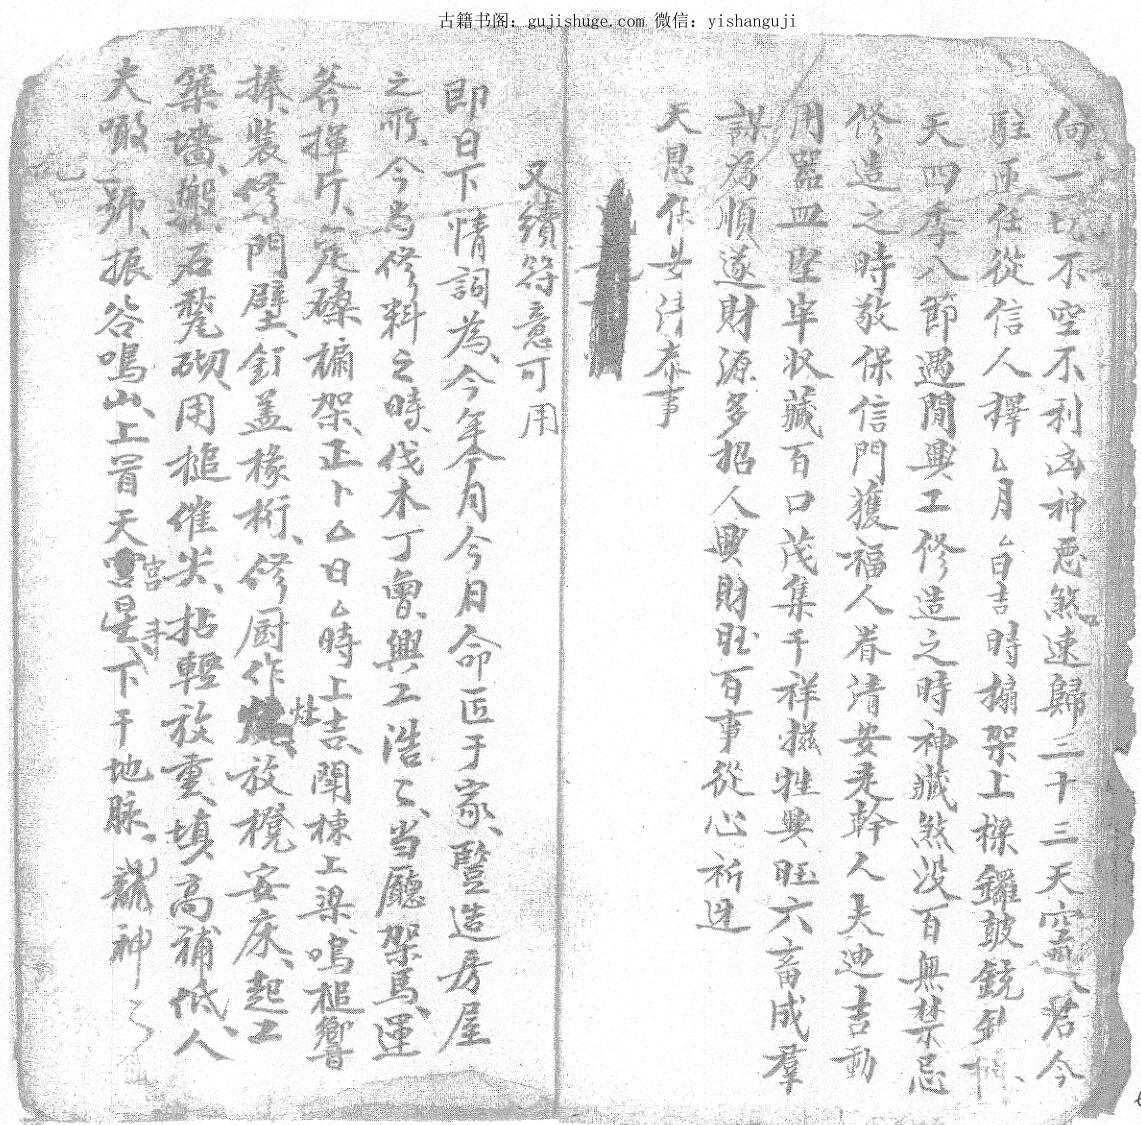 古籍书阁：gujishuge.com 微信：yishanguji
向一切不空不利凶神惡煞速歸三十三天雲霄若今
駐匝任從信人擇厶月厶日吉時搧架上樑鑼鼓銃
天四季八節遇閒興工修造之時神藏煞没百無禁忌
修造之時敬保信門獲福人眷清安走幹人夫迪吉動
用器皿坚牢收藏百口茂集千祥㧯牲興旺六畜成羣
謀為順遂財源多招人興財旺百事從心祈迪
天恩保安清泰事
又續符意可用
即日下情詞為、今年今月今日命匠于家、豎造房屋
之所、今為修料之時、伐木丁曾、興工浩〻、当廳架馬、運
斧揮斤、定磉㮟架、正卜厶日厶時上吉、閗棟上梁、鳴槌響
捧、裝修門壁、釘盖椽桁、修厨作灶、放櫈安床、起工
築墻、搬石甃砌、用槌催尖、拈輕放重、填高補低、人
夫噉號、振谷鳴山、上冒天宫星、下干地脉、龍神〻